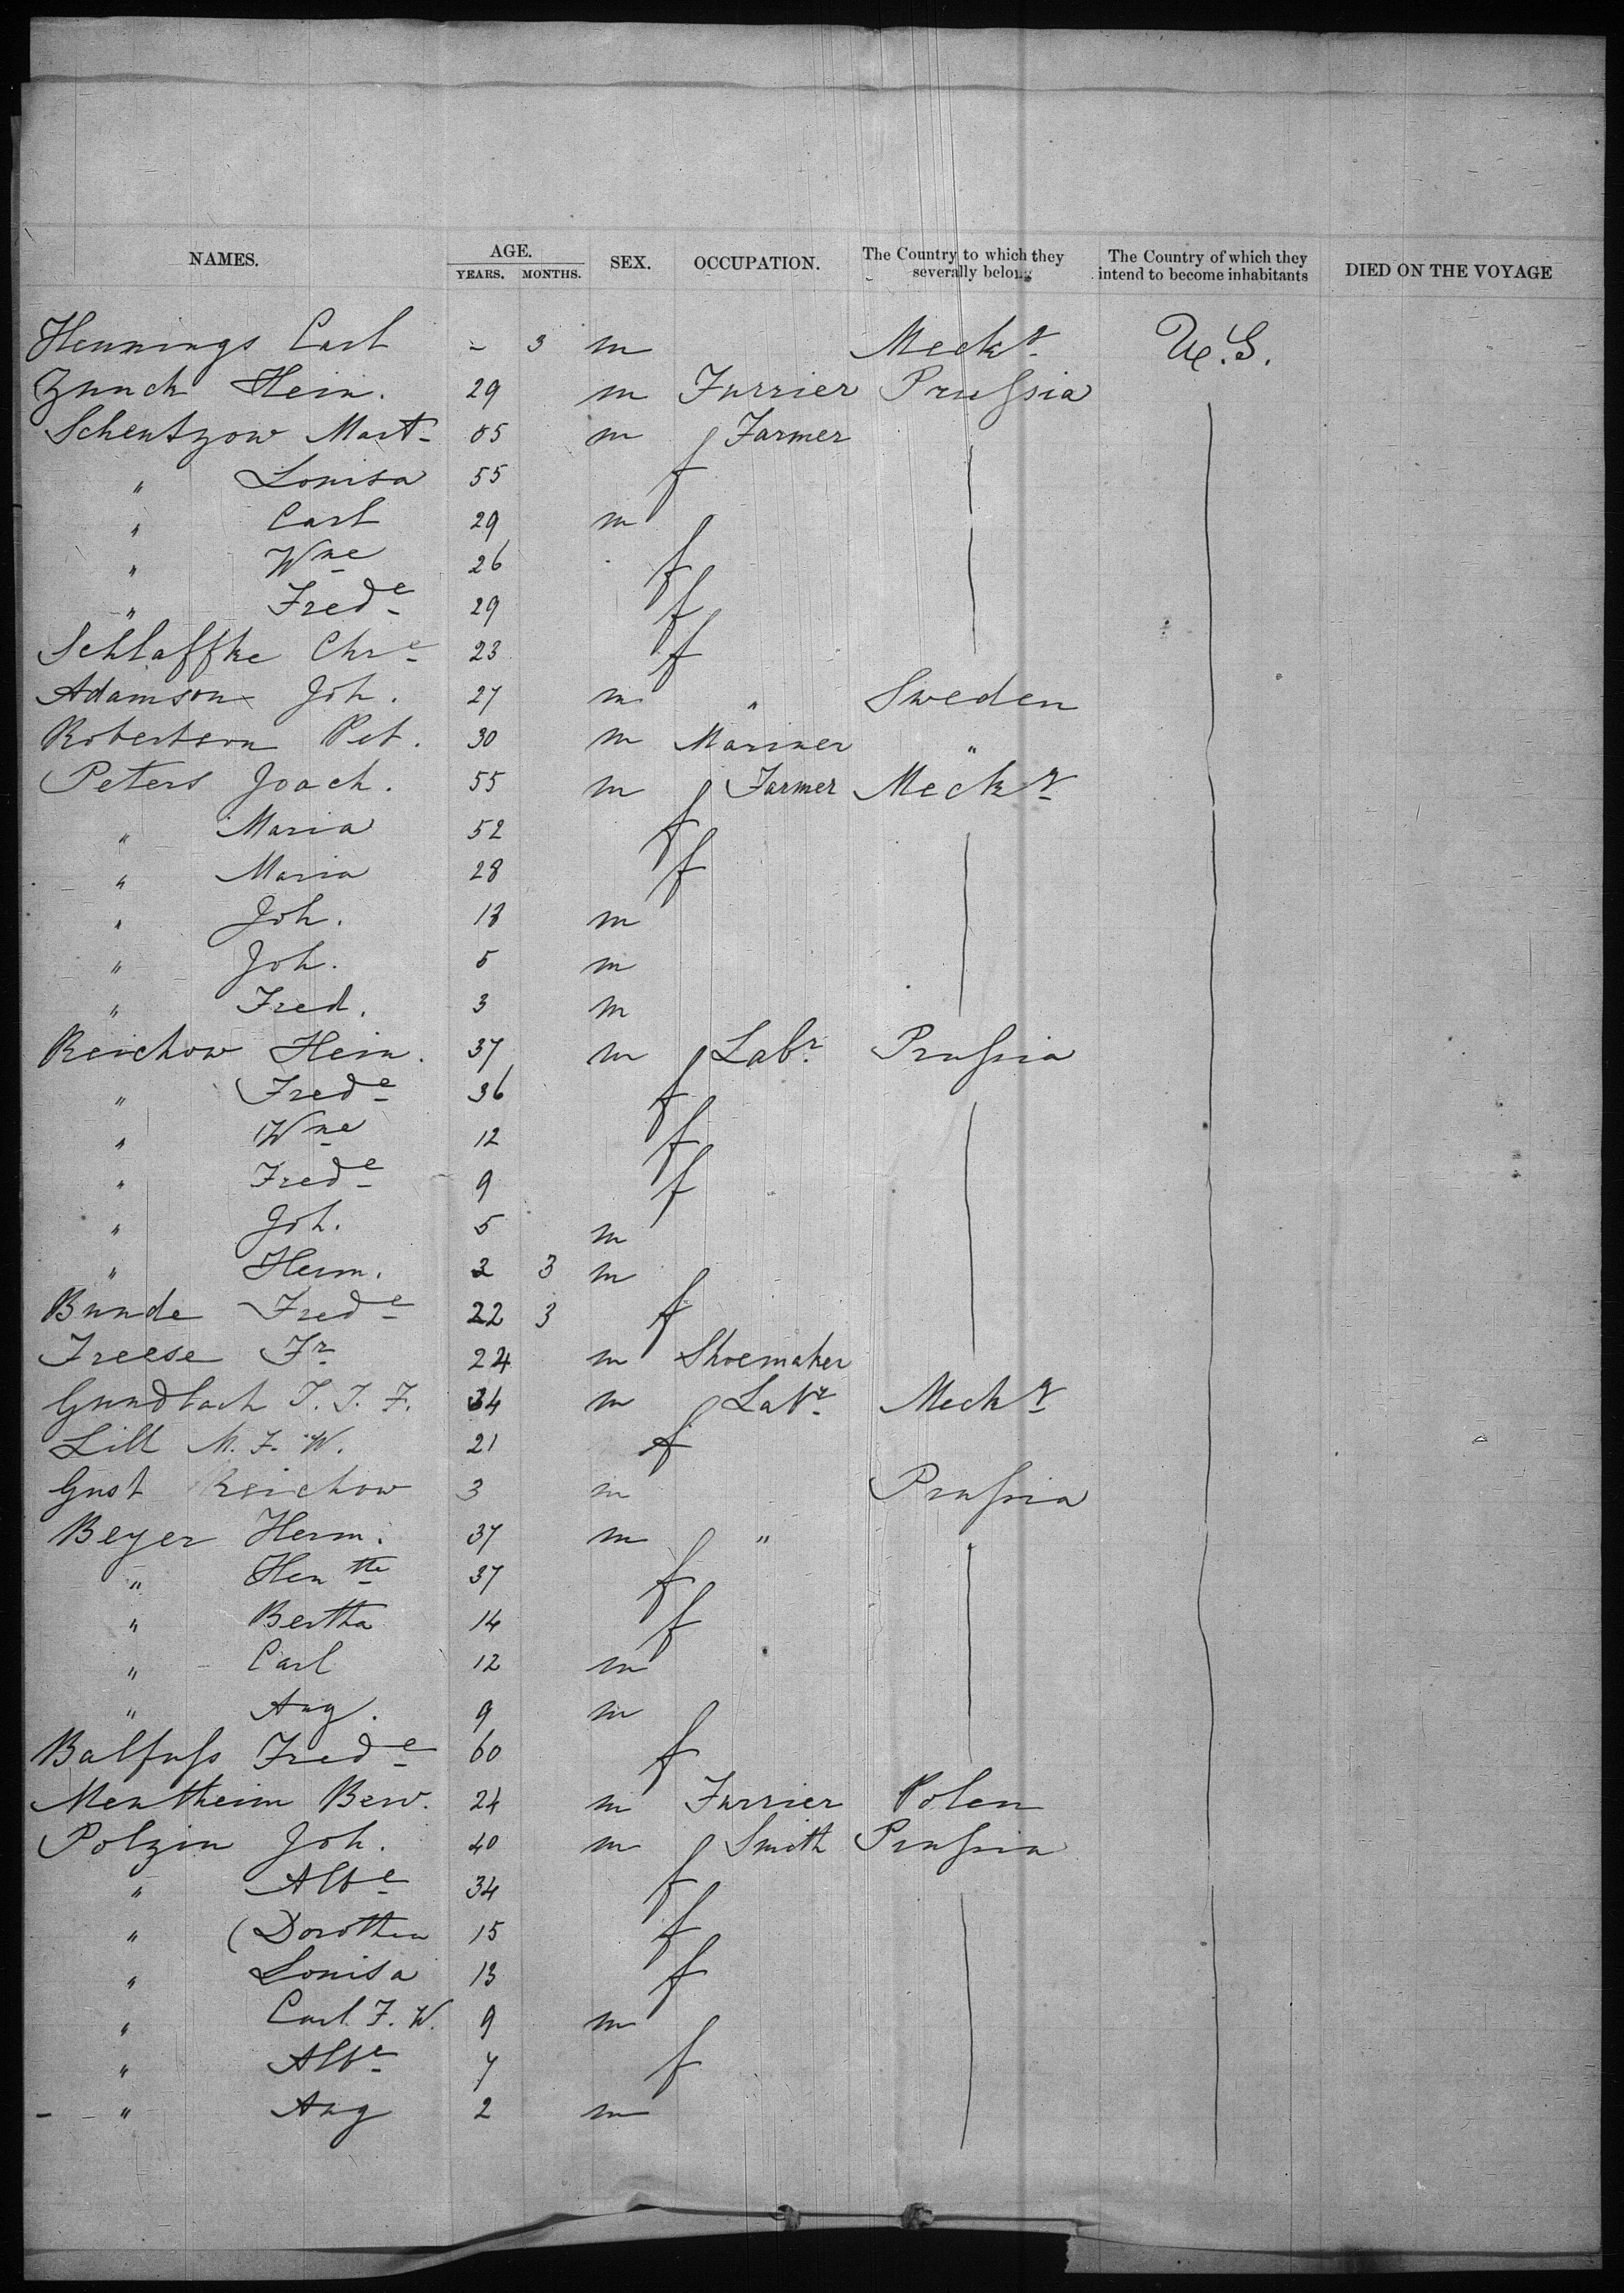 NAMES. AGE. YEARS. MONTHS. SEX. OCCUPATION. The Country to which they severally belong The Country of which they intend to become inhabitants DIED ON THE VOYAGE
Hennings Carl - 3 m Meckr U.S.
Zunck Hein. 29 m Furrier Prussia
Schentzow Mart 65 m Farmer
" Louisa 55 f
" Carl 29 m
" Wne 26 f
" Frede 29 f
Schlaffke Chre 23 f
Adamson Joh. 27 m " Sweden
Robertson Pet. 30 m Mariner "
Peters Joach. 55 m Farmer Meckr
" Maria 52 f
" Maria 28 f
" Joh. 18 m
" Joh. 5 m
" Fred. 3 m
Reichow Hein. 37 m Labr. Prussia
" Frede 36 f
" Wne 12 f
" Frede 9 f
" Joh. 5 m
" Herm. 2 3 m
Bunde Frede 22 3 f
Freese Fr 24 m Shoemaker
Gundlach J. J. F. 34 m Labr Meckr
Lill M. F. W. 21 f
Gust Reichow 3 m Prussia
Beyer Herm. 37 m "
" Hentte 37 f
" Bertha 14 f
" Carl 12 m
" Aug. 9 m
Balfuss Frede 60 f
Mentheim Ber. 24 m Furrier Polen
Polzin Joh. 40 m Smith Prussia
" Albe 34 f
" Dorothea 15 f
" Louisa 13 f
" Carl F. W. 9 m
" Albe 7 f
" Aug 2 m